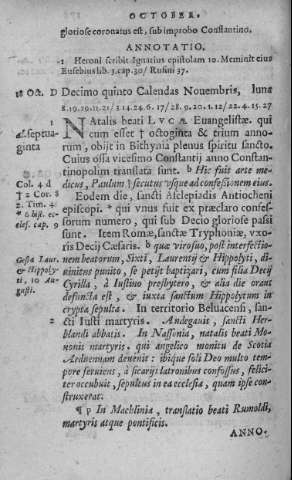 OCTOBER.
gloriose coronatus est, sub improbo Constantino.
ANNOTATIO.
1 Heroni scribit Ignatius epistolam 10. Meminit eius
Eusebius lib. 3. cap. 30/ Rufini 37.
18 Oct. D Decimo quinto Calendas Nouembris, luna
8.19.29.11.21/ 3 14.24.6.17/ 28.9.20.1.12/ 22.4.15.27
Natalis beati LVCÆ Euangelistæ. qui
a l. septua-
ginta
cum esset † octoginta & trium anno-
rum, obijt in Bithynia plenus spiritu sancto.
Cuius ossa vicesimo Constantij anno Constan-
tinopolim translata sunt. b Hic fuit arte me-
Col. 4 d
dicus, Paulum † secutus vsque ad confessionem eius.
† 2 Cor. 8
Eodem die, sancti Asclepiadis Antiocheni
2. Tim. 4
episcopi. * qui vnus fuit ex præclaro confes-
* 6 hist. ec-
cles. cap. 9
sorum numero, qui sub Decio gloriose passi
sunt. Item Romæ, sanctæ Tryphoniæ, vxo-
ris Decij Cæsaris. b quæ viro suo, post interfectio-
Gesta Laur.
nem beatorum, Sixti, Laurentij & Hippolyti, di-
& Hippoly-
uinitus punito, se petijt baptizari, cum filia Decij
ti, 10 Au-
gusti.
Cyrilla, à Iustino presbytero, & alia die orans
defuncta est, & iuxta sanctum Hippolytum in
crypta sepulta. In territorio Beluacensi, san-
cti Iusti martyris. Andegauis, sancti Her-
blandi abbatis. In Nassonia, natalis beati Mo-
nonis martyris, qui angelico monitu de Scotia
Arduennam deuenit: ibique soli Deo multo tem-
pore seruiens, à sicarijs latronibus confossus, felici-
ter occubuit, sepultus in ea ecclesia, quam ipse con-
struxerat.
¶ p In Machlinia, translatio beati Rumoldi,
martyris atque pontificis.
ANNO-